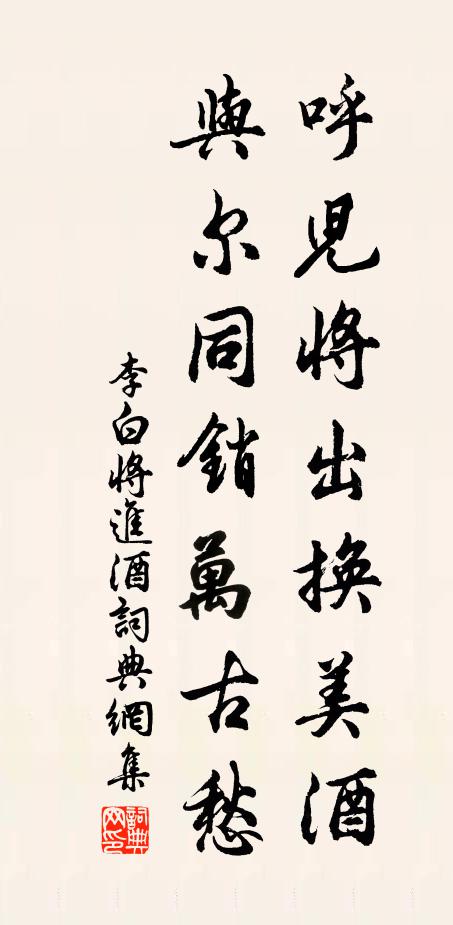 呼児將出換美酒
與尔同銷萬古愁
李白將進酒詞典網集
詞典網印